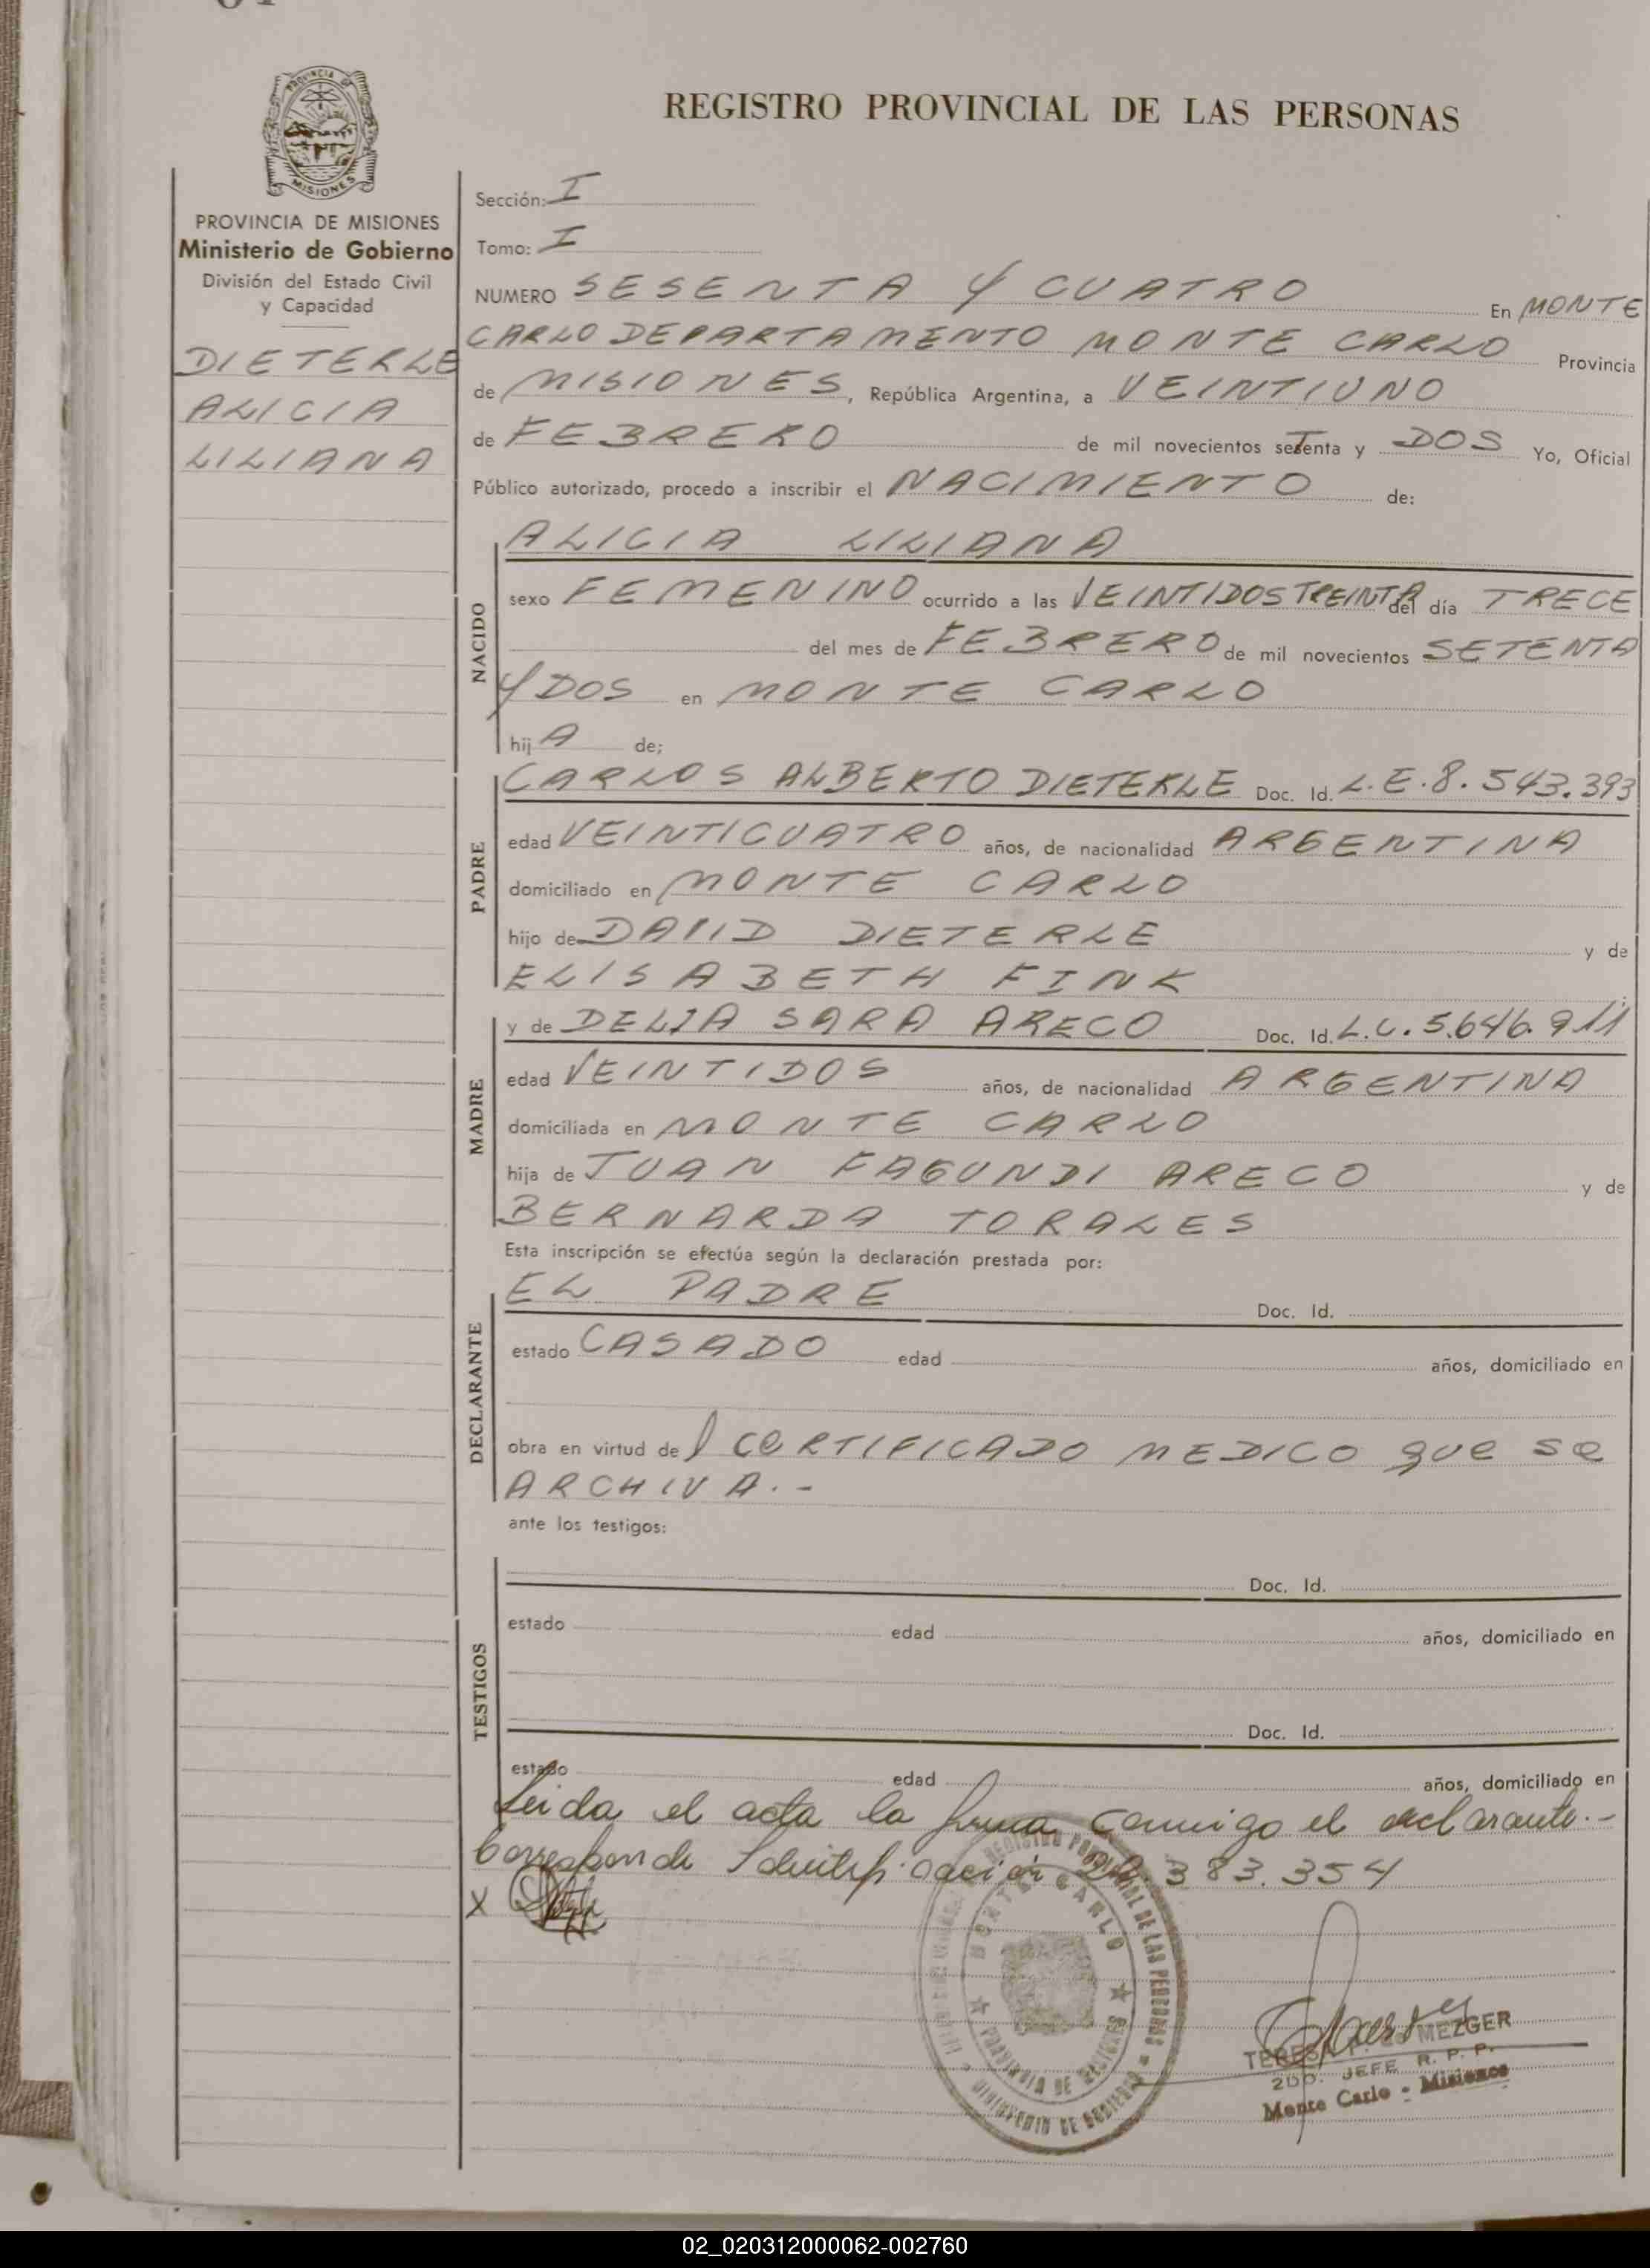 REGISTRO PROVINCIAL DE LAS PERSONAS
PROVINCIA DE
MISIONES
PROVINCIA DE MISIONES
Ministerio de Gobierno
División del Estado Civil
y Capacidad
DIETERLE
ALICIA
LILIANA
Sección: I
Tomo: I
NUMERO SESENTA Y CUATRO En MONTE
CARLO DEPARTAMENTO MONTE CARLO Provincia
de MISIONES, República Argentina, a VEINTIUNO
de FEBRERO de mil novecientos setenta y DOS Yo, Oficial
Público autorizado, procedo a inscribir el NACIMIENTO de:
NACIDO
ALICIA LILIANA
sexo FEMENINO ocurrido a las VEINTIDOS TREINTA del día TRECE
del mes de FEBRERO de mil novecientos SETENTA
Y DOS en MONTE CARLO
hijA de;
PADRE
CARLOS ALBERTO DIETERLE Doc. Id. L.E.8.543.393
edad VEINTICUATRO años, de nacionalidad ARGENTINA
domiciliado en MONTE CARLO
hijo de DAVID DIETERLE y de
ELISABETH FINK ;
MADRE
y de DELIA SARA ARECO Doc. Id. L.C.5.646.911
edad VEINTIDOS años, de nacionalidad ARGENTINA
domiciliada en MONTE CARLO
hija de JUAN FAGUNDI ARECO y de
BERNARDA TORALES
Esta inscripción se efectúa según la declaración prestada por:
DECLARANTE
EL PADRE Doc. Id.
estado CASADO edad años, domiciliado en
obra en virtud de l CeRTIFICADO MEDICO que se
ARCHIVA.-
ante los testigos:
TESTIGOS
Doc. Id.
estado edad años, domiciliado en
Doc. Id.
estado edad años, domiciliado en
Leida el acta la firma conmigo el declarante.-
Corresponde Identificación 383.354
X
REGISTRO PROVINCIAL DE LAS PERSONAS
MINISTERIO DE GOBIERNO
MONTE CARLO
PROVINCIA DE MISIONES
TERESA MEZGER
2DO. JEFE R. P. P.
Monte Carlo - Misiones
02_020312000062-002760